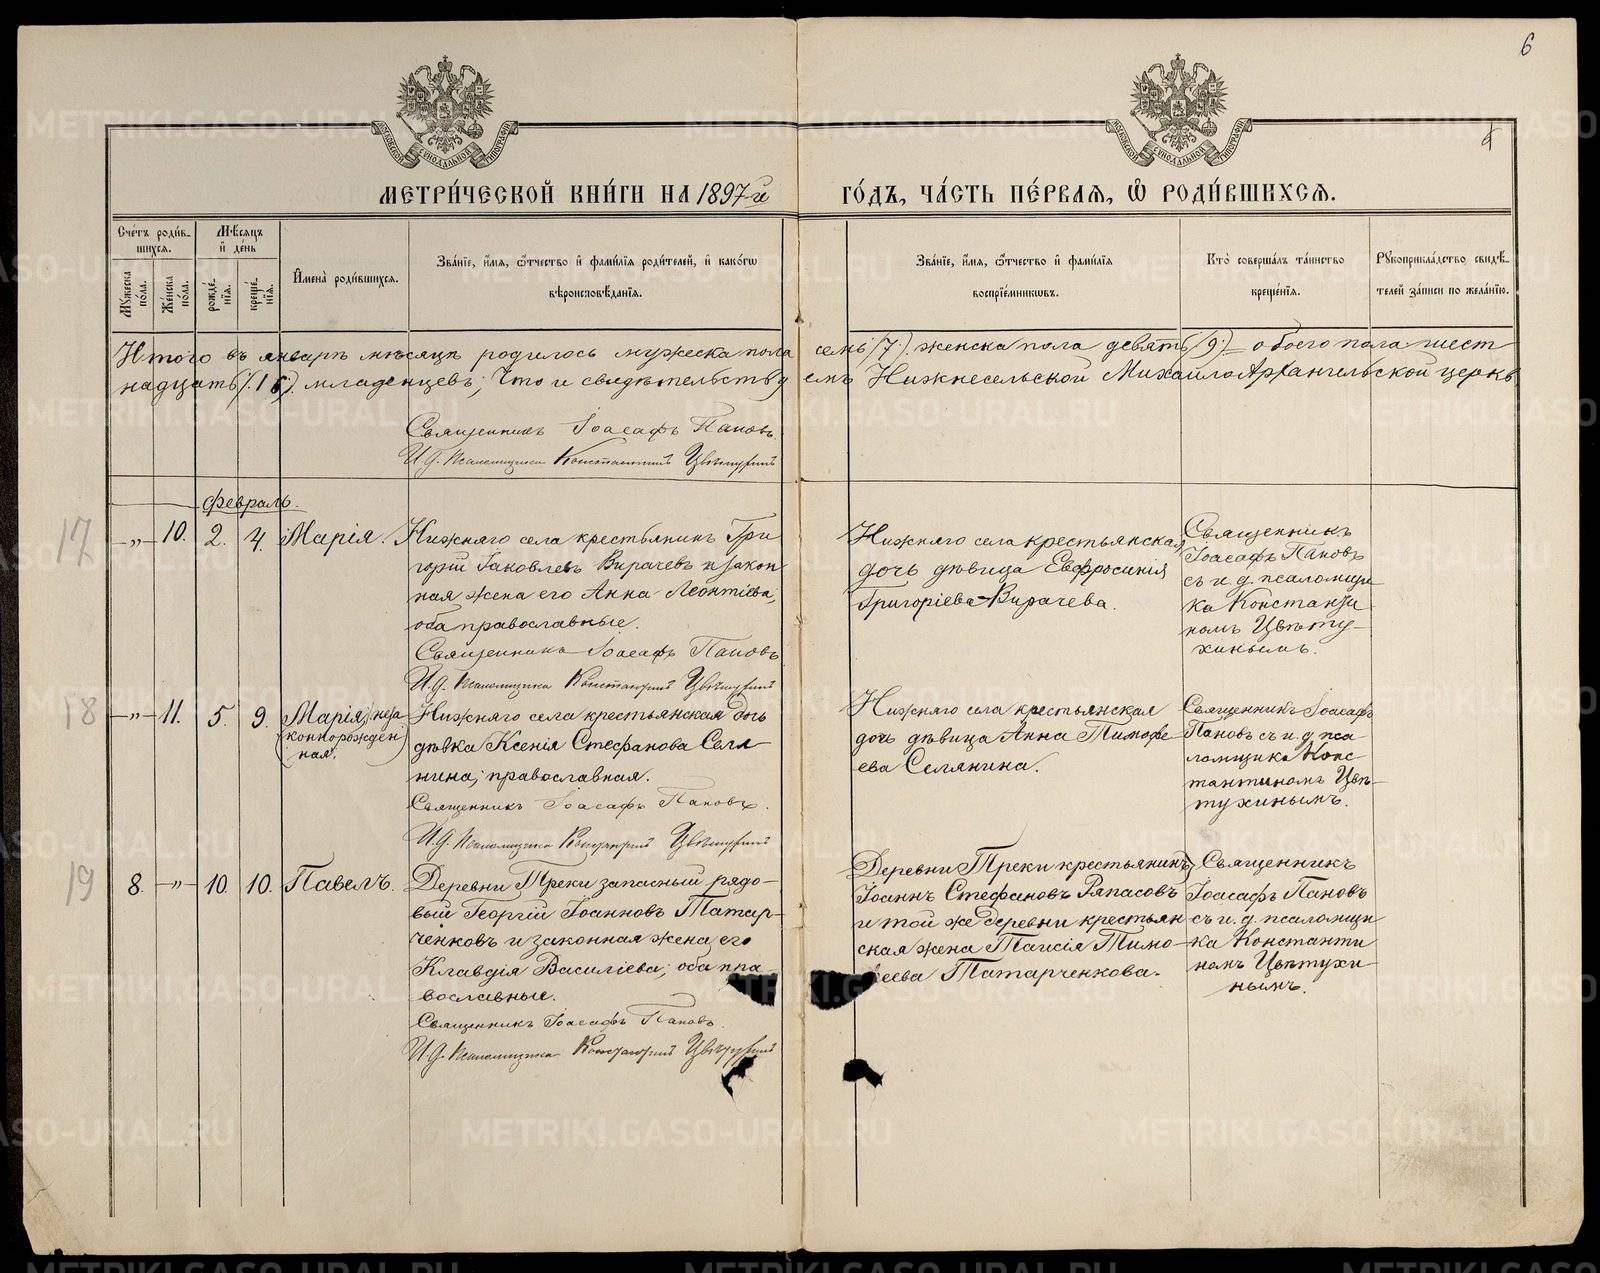 6
МОСКОВСКОЙ СѴНОДАЛЬНОЙ ТИПОГРАФІИ
МОСКОВСКОЙ СѴНОДАЛЬНОЙ ТИПОГРАФІИ
МЕТРИ́ЧЕСКОЙ КНИ́ГИ НА 1897-й ГО́ДЪ, ЧА́СТЬ ПЕ́РВАЯ, Ѽ РОДИ́ВШИХСЯ.
Сче́тъ роди́в-
шихся.
Му́жеска по́ла.
Же́нска по́ла.
Мѣ́сяцъ
и҆ де́нь
рожде́-
нїя.
креще́-
нїя.
И҆мена̀ роди́вшихся.
Зва́нїе, и҆́мя, ѻ҆́тчество и҆ фами́лїя роди́телей, и҆ како́гѡ
вѣроисповѣ́данїя.
Зва́нїе, и҆́мя, ѻ҆́тчество и҆ фами́лїя
воспрїе́мниковъ.
Кто̀ соверша́лъ та́инство
креще́нїя.
Рꙋкоприкла́дство свидѣ́-
телей за́писи по жела́нїю.
Итого въ январѣ мѣсяцѣ родилось мужеска пола семь (7.). женска пола девять (9.) – обоего пола шест
надцать (. 16.) младенцевъ; Что и свидѣтельствуемъ Нижнесельской Михайло Архангельской церкв
Священникъ Іоасафъ Пановъ
И.д. Псаломщика Константинъ Цвѣтухинъ
Февраль.
17 — „ — 10. 2. 4. Марія.
Нижняго села крестьянинъ Гри
горій Іаковлевъ Вирачевъ и закон
ная жена его Анна Леонтіева,
оба православные.
Священникъ Іоасафъ Пановъ
И.д. Псаломщика Константинъ Цвѣтухинъ
Нижняго села крестьянская
дочь дѣвица Евфросинія
Григоріева Вирачева.
Священникъ
Іоасафъ Пановъ
съ и. д. псаломщи
ка Константи
номъ Цвѣту–
хинымъ.
18 — „ — 11. 5. 9. Марія, (неза
коннорожден
ная).
Нижняго села крестьянская дочь
дѣвка Ксенія Стефанова Селя
нина, православная.
Священникъ Іоасафъ Пановъ.
И.д. Псаломщика Константинъ Цвѣтухинъ
Нижняго села крестьянская
дочь дѣвица Анна Тимофе
ева Селянина.
Священникъ Іоасафъ
Пановъ съ и. д. пса
ломщика Конс
тантиномъ Цвѣ–
тухинымъ.
19 8. — „ — 10. 10. Павелъ.
Деревни Треки запасный рядо–
вый Георгій Іоанновъ Татар–
ченковъ и законная жена его
Клавдія Василіева, оба пра
вославные.
Священникъ Іоасафъ Пановъ.
И.д. Псаломщика Константинъ Цвѣтухинъ
Деревни Треки крестьянинъ
Іоаннъ Стефановъ Ряпасовъ
и той же деревни крестьян
ская жена Таисія Тимо–
ѳеева Татарченкова.
Священникъ
Іоасафъ Пановъ
съ и. д. псаломщи
ка Константи
номъ Цвѣтухи–
нымъ.
METRIKI.GASO-URAL.RU